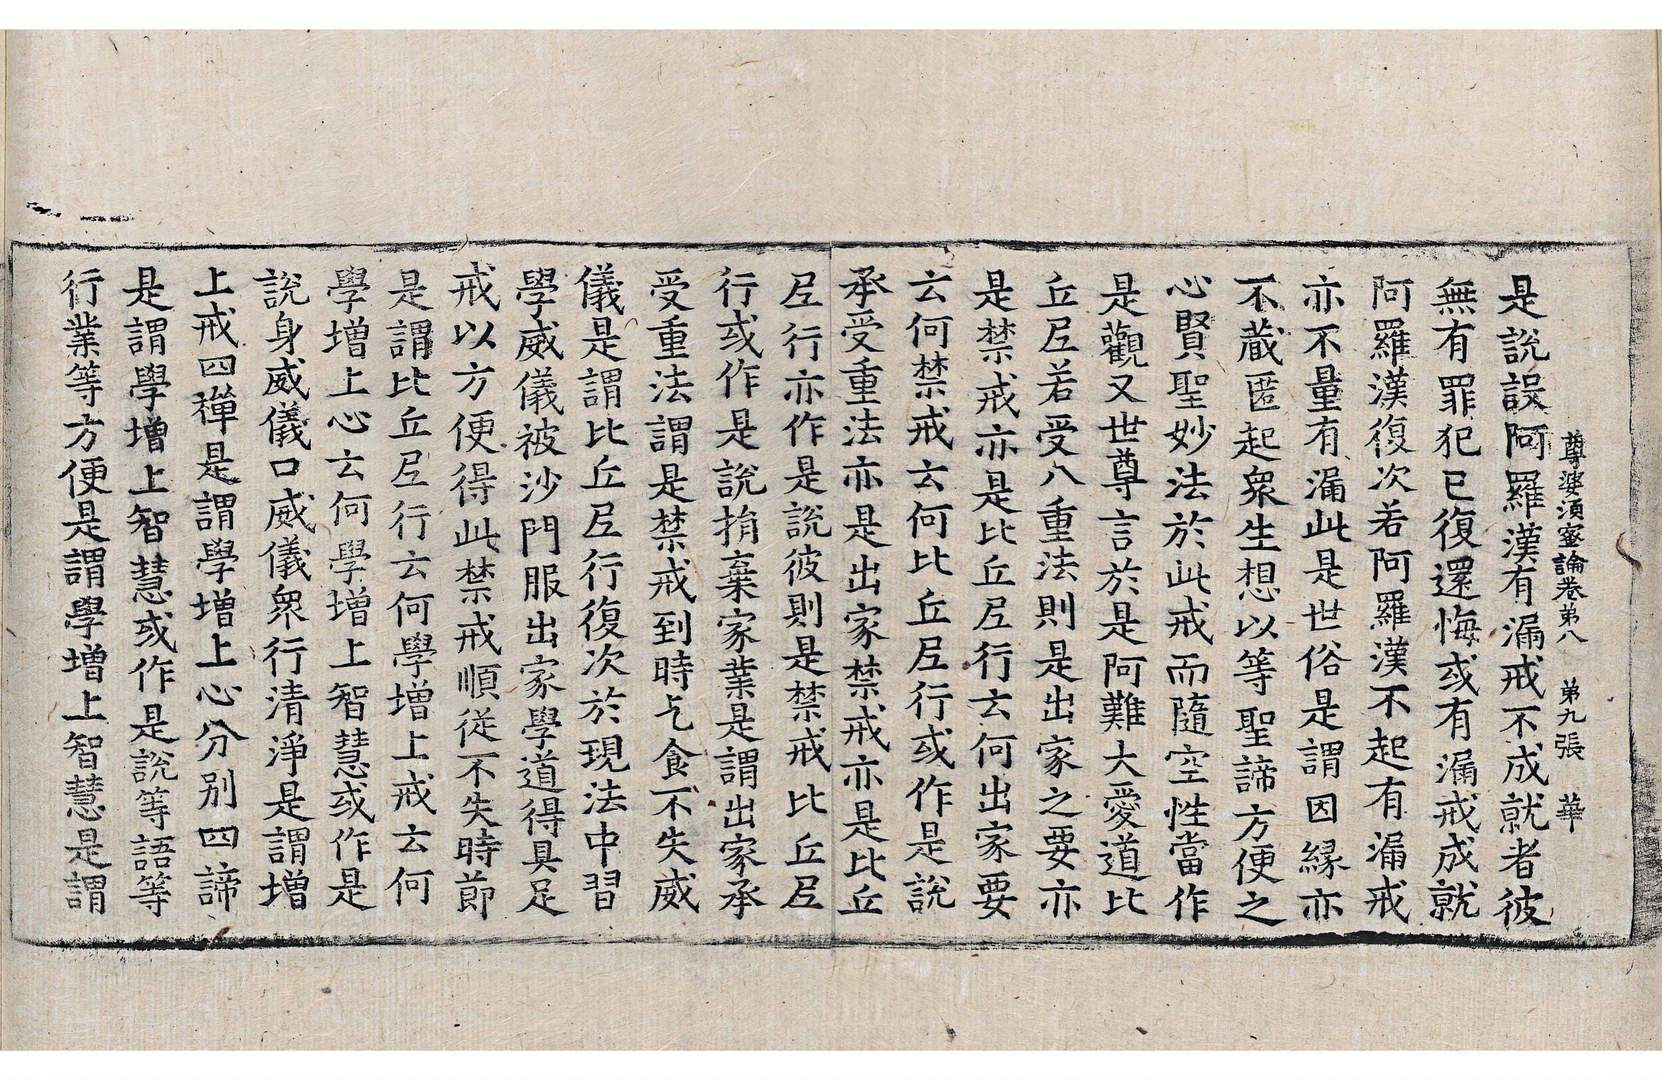 尊婆須蜜論卷第八　第九張　華
是說誤阿羅漢有漏戒不成就者彼
無有罪犯已復還悔或有漏戒成就
阿羅漢復次若阿羅漢不起有漏戒
亦不量有漏此是世俗是謂因緣亦
不藏匿起衆生想以等聖諦方便之
心賢聖妙法於此戒而隨空性當作
是觀又世尊言於是阿難大愛道比
丘尼若受八重法則是出家之要亦
是禁戒亦是比丘尼行云何出家要
云何禁戒云何比丘尼行或作是說
承受重法亦是出家禁戒亦是比丘
尼行亦作是說彼則是禁戒比丘尼
行或作是說捐棄家業是謂出家承
受重法謂是禁戒到時乞食不失威
儀是謂比丘尼行復次於現法中習
學威儀被沙門服出家學道得具足
戒以方便得此禁戒順從不失時節
是謂比丘尼行云何學增上戒云何
學增上心云何學增上智慧或作是
說身威儀口威儀衆行清淨是謂增
上戒四禪是謂學增上心分別四諦
是謂學增上智慧或作是說等語等
行業等方便是謂學增上智慧是謂